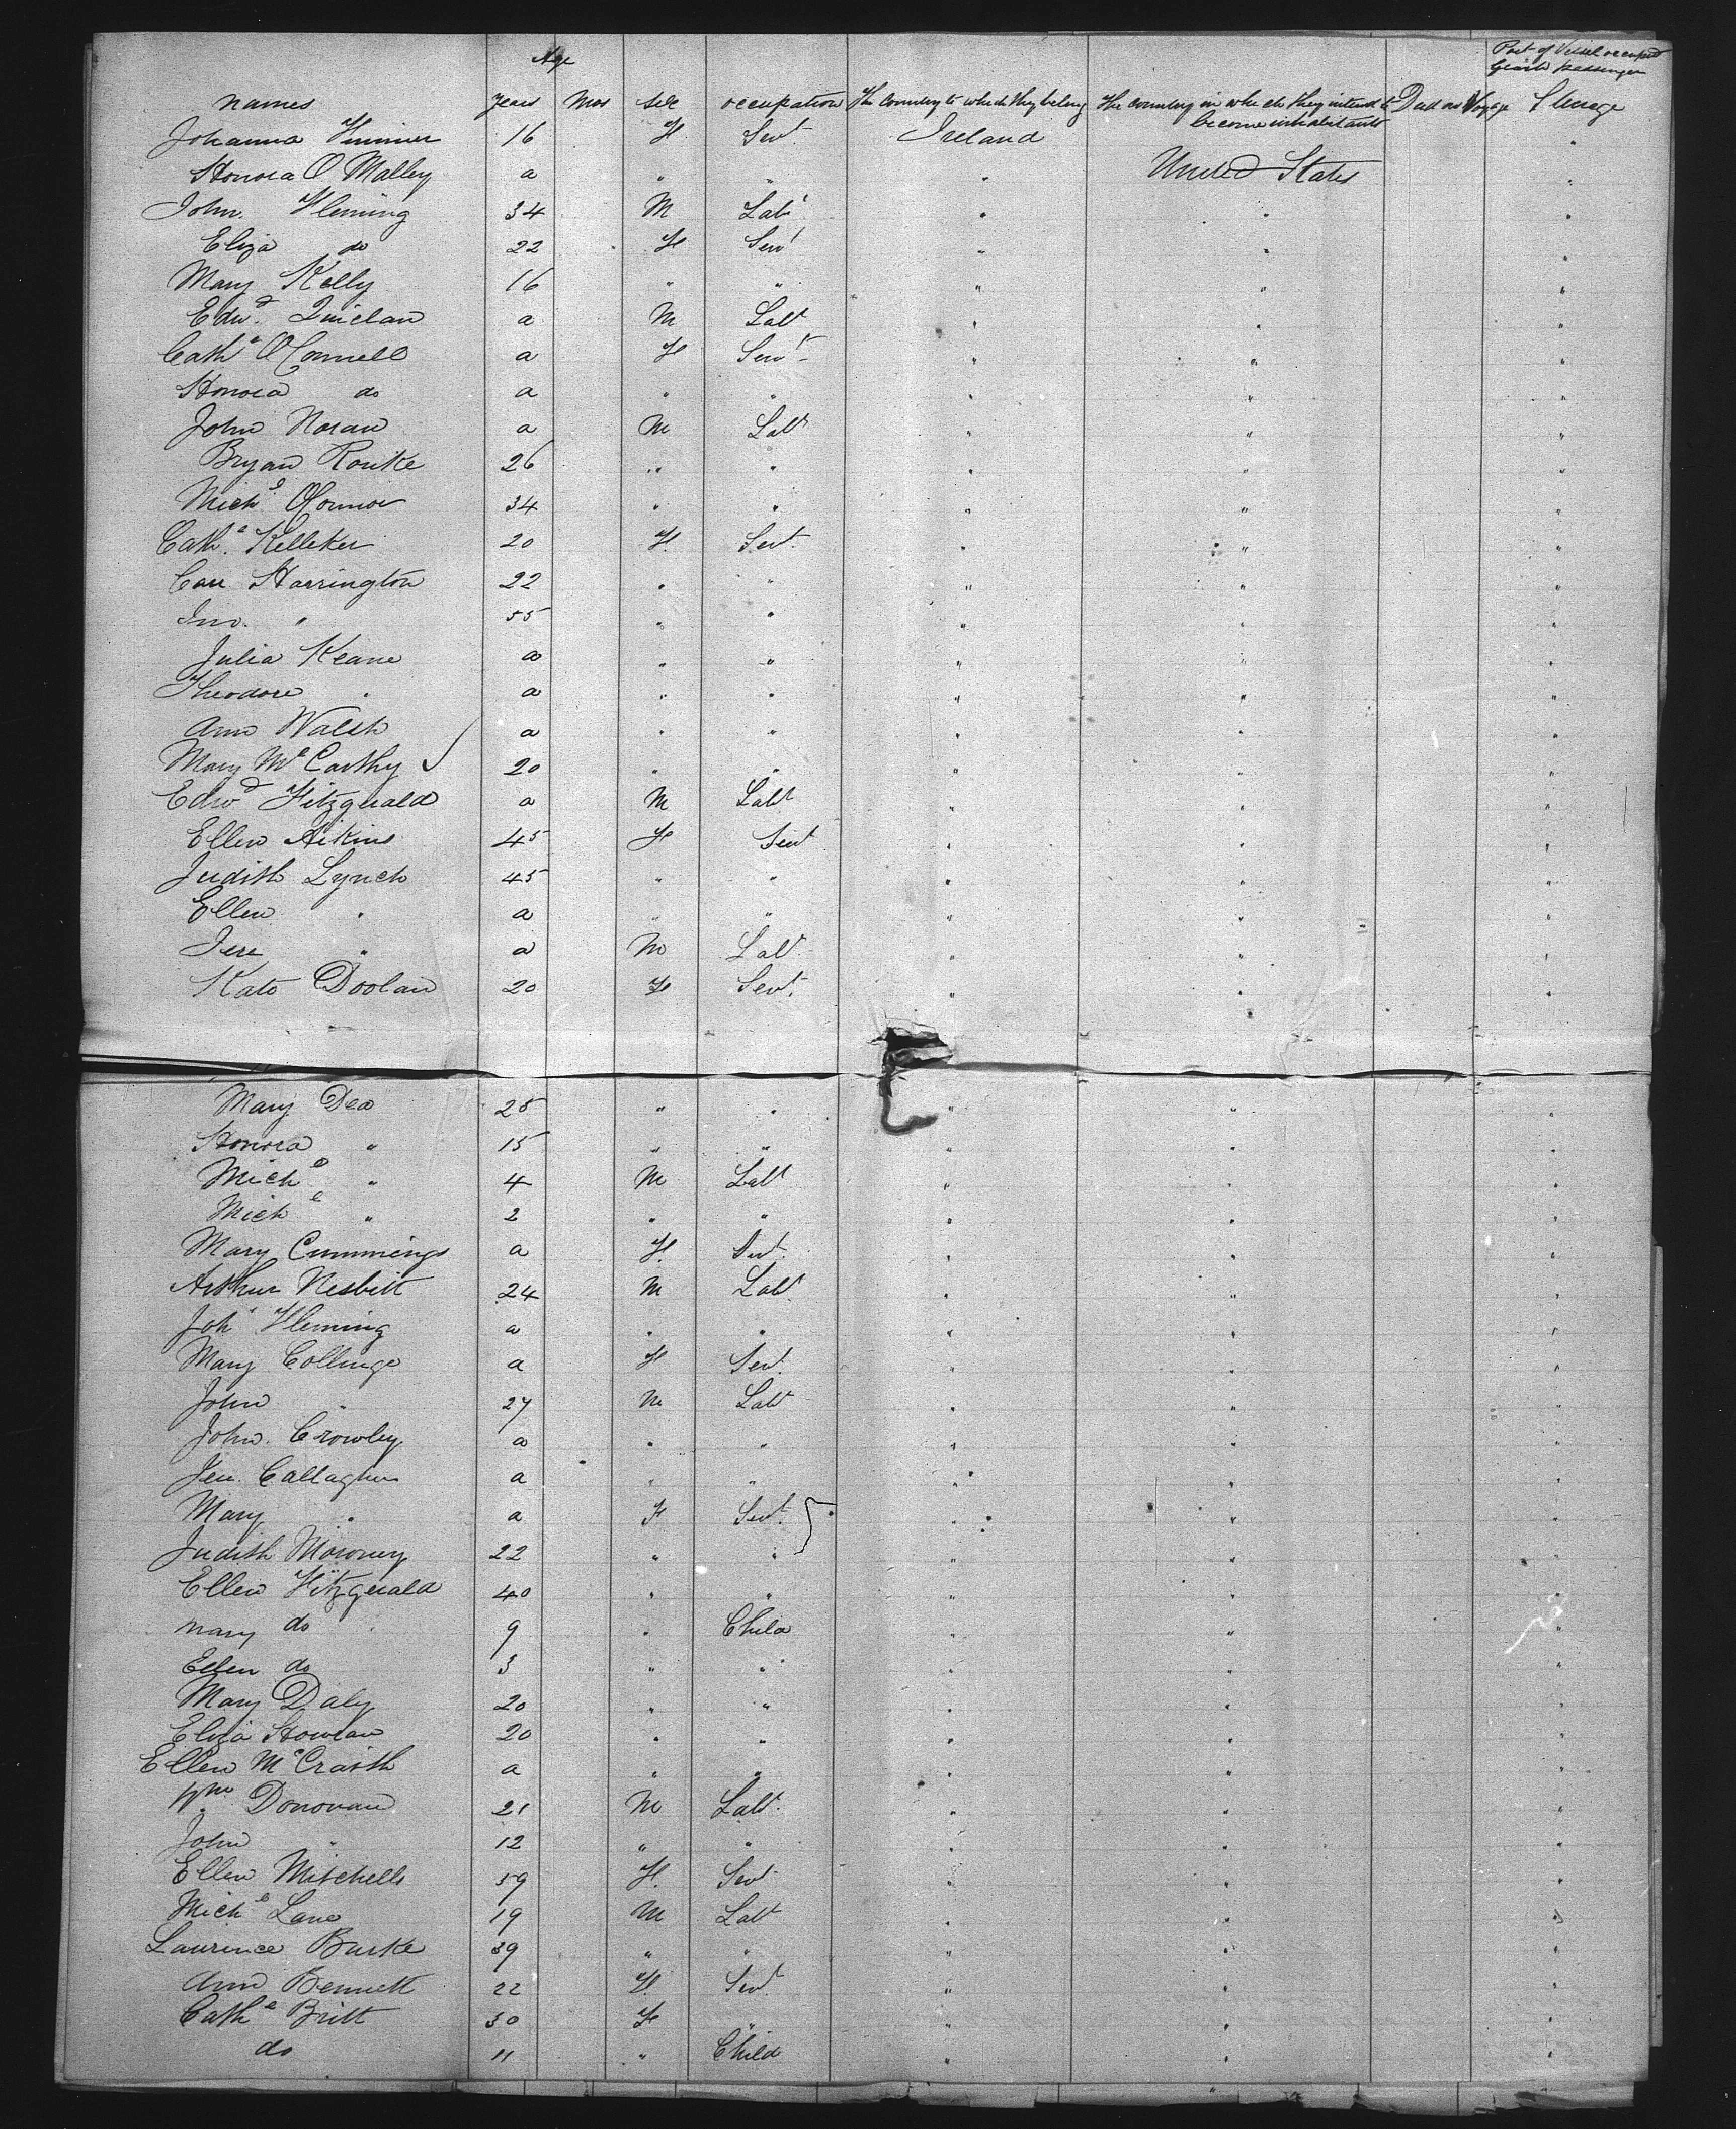 Age Part of Vessel occupied
by each passenger
names years Mos sex occupation The Country to which they belong The country in which they intend to Died on Voyage Steerage
become inhabitants
Johanna 16 F Servt Ireland "
Honora O Malley a " " " United States "
John Fleming 34 M Labr " " "
Eliza do 22 F Servt " " "
Mary Kelly 16 " " " " "
Edwd. Quinlan a M Labr " " "
Cathe O'Connell a F Servt " " "
Honora do a " " " " "
John Horan a M Labr " " "
Bryan Rourke 26 " " " " "
Michl O'Connor 34 " " " " "
Cathe. Kelleher 20 F. Servt. " " "
Con Harrington 22 " " " " "
Jno. " 55 " " " " "
Julia Keane a " " " " "
Theodore " a " " " " "
Ann Walsh a " " " " "
Mary McCarthy 20 " " " " "
Edwd Fitzgerald a M Labr " " "
Ellen Aikins 45 F Servt " " "
Judith Lynch 45 " " " " "
Ellen " a " " " " "
Jere " a M Labr " " "
Kate Doolan 20 F Servt. " " "
Mary Dea 25 " " " " "
Honora " 15 " " " " "
Michl " 4 M Labr " " "
Michl " 2 " " " " "
Mary Cummings a F. Servt. " " "
Arthur Nesbitt 24 M Labr " " "
Joh Fleming a " " " " "
Mary Collinge a F Servt. " " "
John " 27 M Labr " " "
John. Crowley a " " " " "
Jerr. Callaghan a " " " " "
Mary " a F Servt. " " "
Judith Moroney 22 " " " " "
Ellen Fitzgerald 40 " " " " "
mary do 9 " Child " " "
Ellen do 3 " " " " "
Mary Daly 20 " " " " "
Eliza 20 " " " " "
Ellen McCraith a " " " " "
Wm Donovan 21 M Labr. " " "
John " 12 " " " " "
Ellen Mitchells 19 F. Servt " " "
Michl Lane 19 M Labr " " "
Laurence Burke 39 " " " " "
Ann Bennett 22 F. Servt " " "
Cathe Britt 30 F " " " "
do 11 " Child " " "